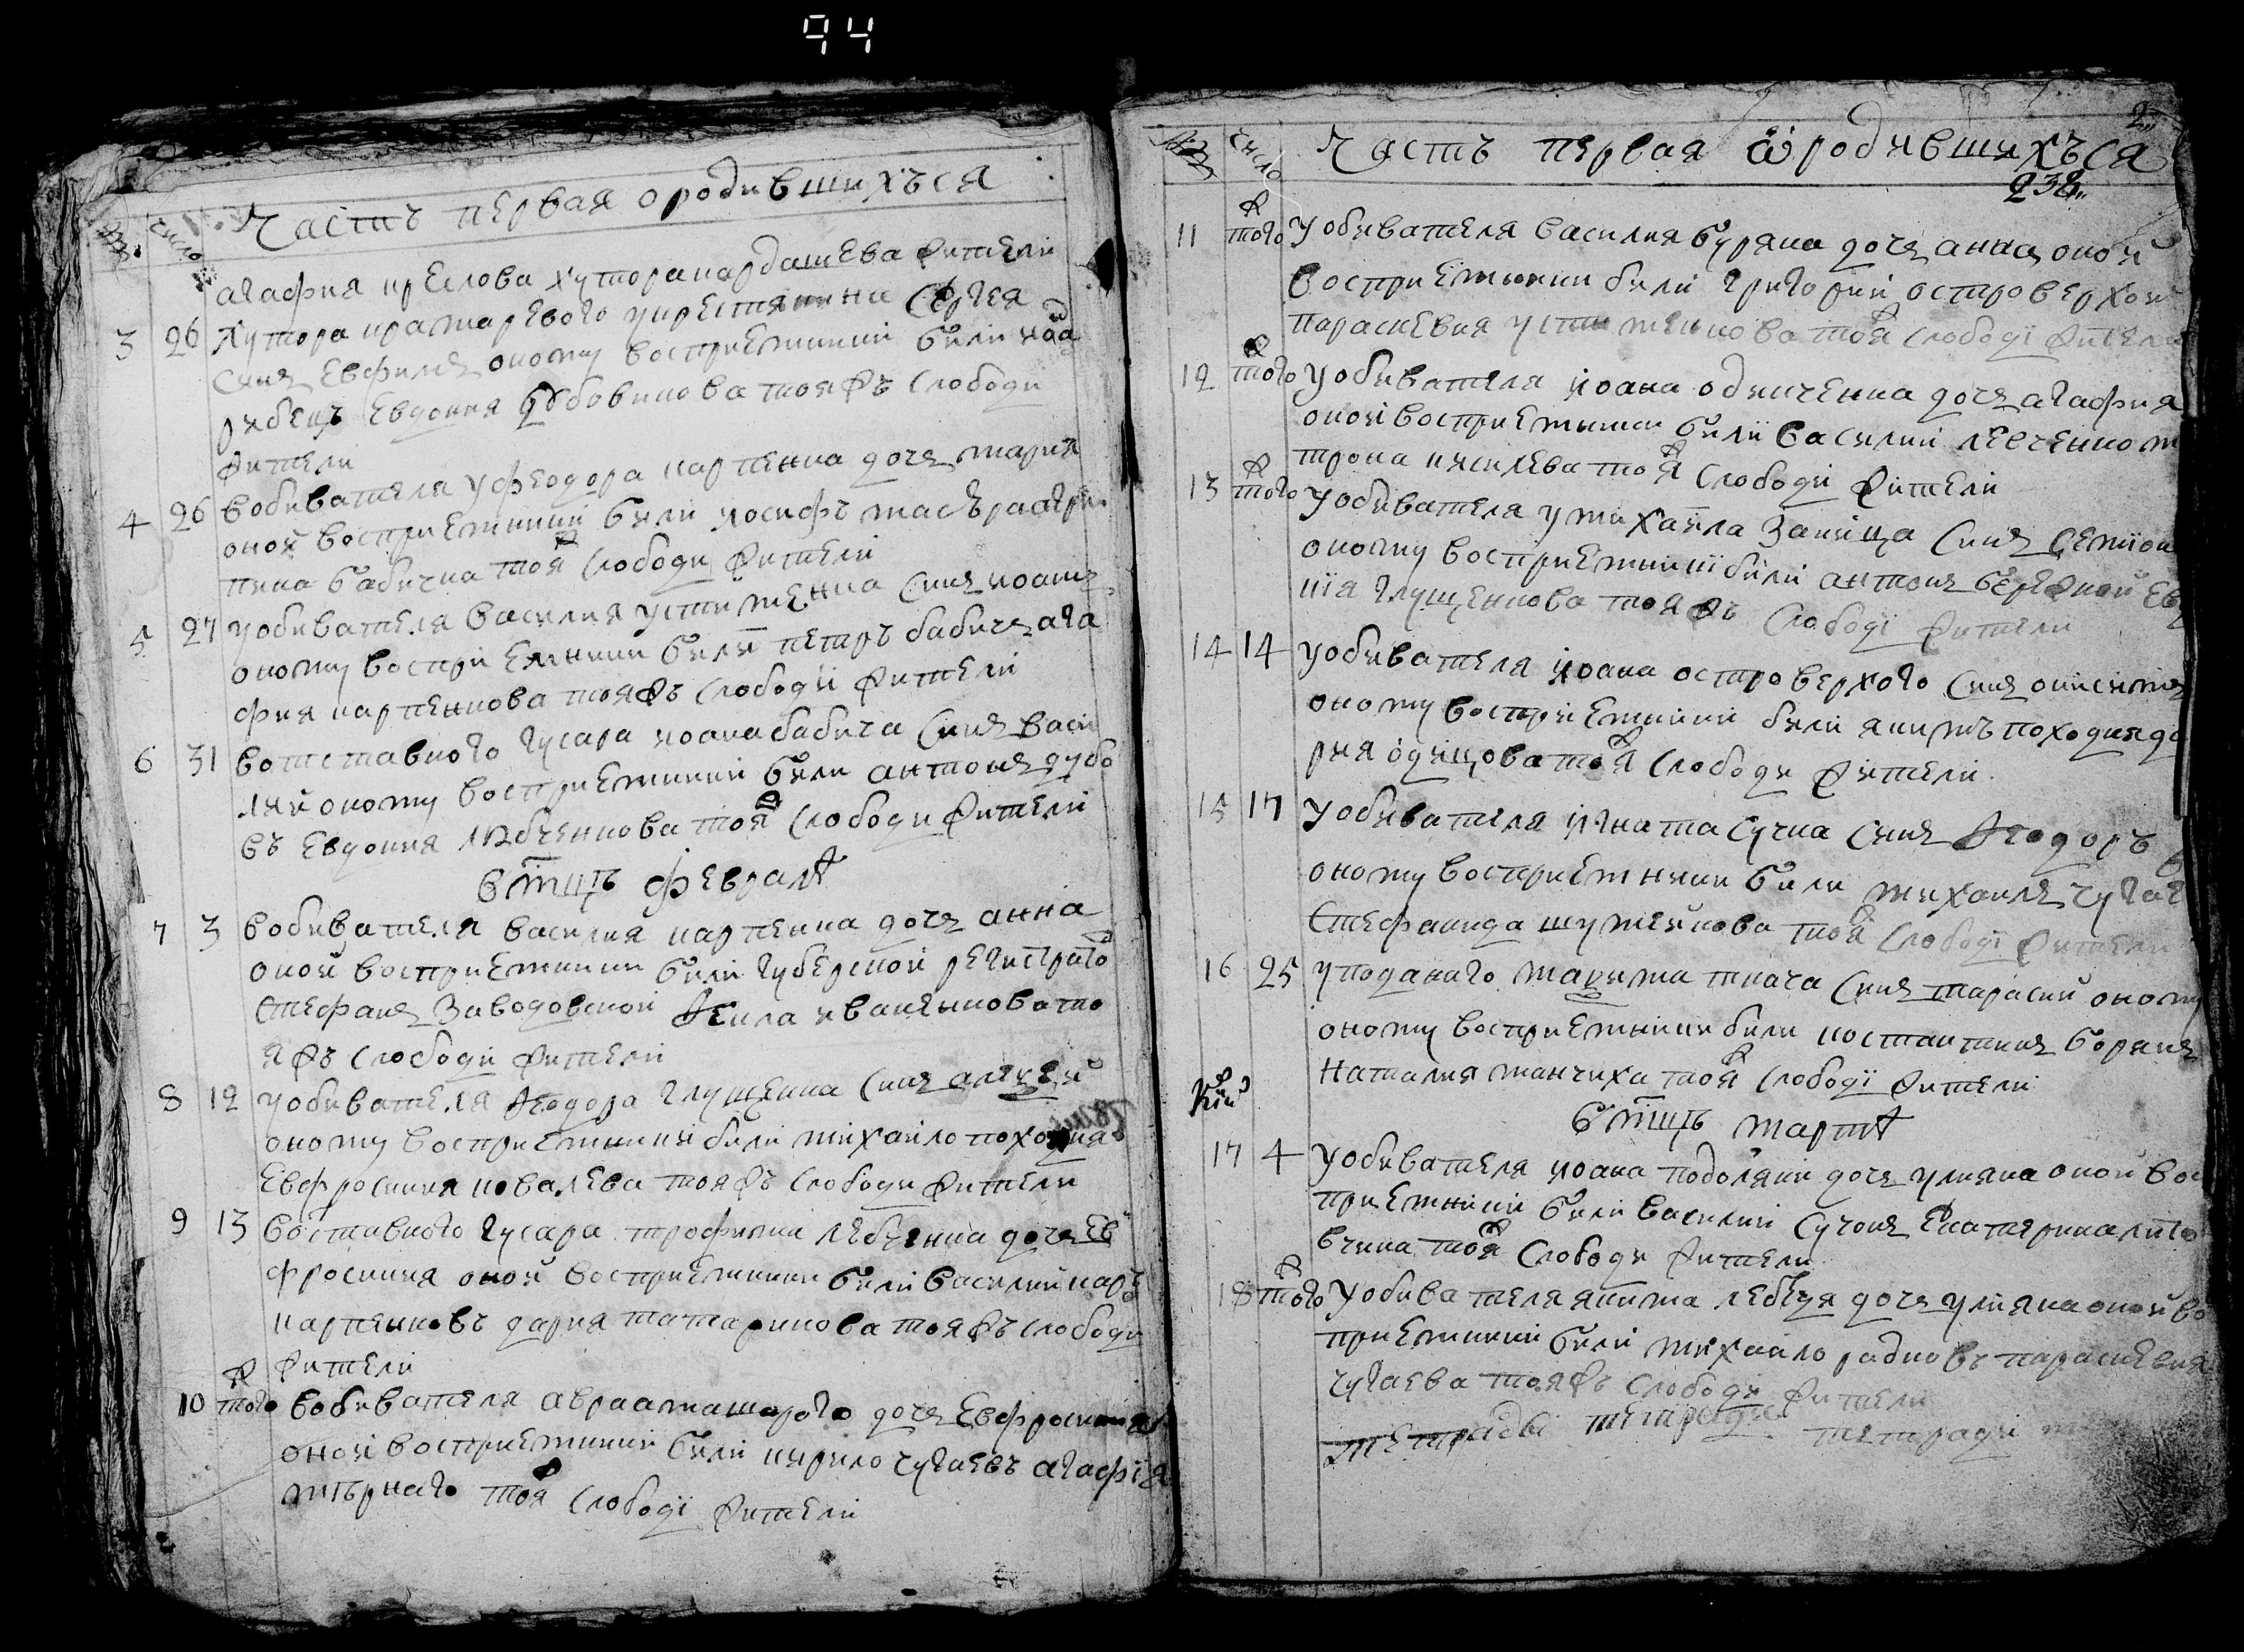 94
Часть первая о родившихъся
число
агафия креслова хутора кардашева жители
3 26 Хутора крамаревого у крестянина Сергея
Синъ Евфимъ оному восприемники били
рибецъ Евдокия Дубовикова тояжъ слободи
жители
4 26 вобивателя у феодора карпенка дочъ мария
оной восприемники били иосифъ
бабичка тояж слободи жители
5 27 у обивателя василия устименка Синъ иоанъ
оному восприемники били петръ бабичъ ага
фия карпенкова тояжъ слободи жители
6 31 вотставного гусара иоана бабича Синъ васи
лий оному восприемники били антонъ дубо
въ Евдокия лебченкова тояж слободи жители
в мцѣ февралѣ
7 3 вобивателя василия карпенка дочъ анна
оной восприемники били губерской регистрато
Стефанъ Заводовской Ѳекла иваненкова то
яжъ слободи жители
8 12 у обивателя Ѳеодора глущенка Синъ алеѯей
оному восприемники били михайло походня
Евфросиния ковалева тояжъ слободи жители
9 13 вотставного гусара трофима лебченка дочъ Ев
фросиния оной восприемники били василий кар
карпенковъ дария татаринова тояжъ слободи
жители
10 того ж вобивателя авраама шарого дочъ Евфросиния
оной восприемники били кирило чугаевъ агафїя
тояж слободї жители
2
Число Часть первая ѡ родившихъся
238
11 того ж У обивателя василия буряка дочъ анна оной
восприемники били григорий островерхой
параскевия устименкова тояж слободї жители
12 того ж у обивателя иоана одинченка дочъ агафия
оной восприемники били василий левченко м
трона киселева тояж слободи жители
13 того ж У обивателя у михайла Заница Синъ Семїон
оному восприемники били антонъ бережной Ев
кїя глущенкова тояжъ слободї жители
14 14 у обивателя иоана островерхого Синъ онисимъ
оному восприемники били якимъ походня да
рия одинцова тояж слободи жители
15 17 У обивателя игната сучка Синъ Ѳеодоръ
оному восприемники били михаилъ чугае
Стефанида шумейкова тояж слободї жители
16 25 у поданого маѯима ткача Синъ тарасий оному
оному восприемники били костантинъ борянъ
Наталия манчиха тояж слободї жители
в мцѣ мартѣ
17 4 У обивателя иоана подоляки дочъ улияна оной вос
приемники били василий Сучокъ Екатерина лито
вчина тояж слободи жители
18 того ж У обивателя якима лебедя дочъ улияна оной во
приемники били михайло радковъ параскевия
чугаева тояжъ слободи жители